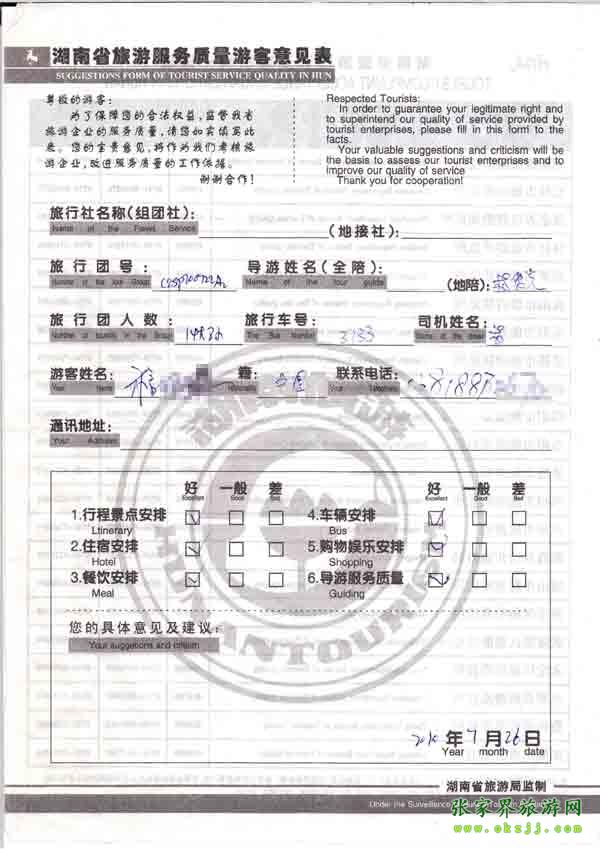 湖南省旅游服务质量游客意见表
SUGGESTIONS FORM OF TOURIST SERVICE QUALITY IN HUN
尊敬的游客：
为了保障您的合法权益，监督我省
旅游企业的服务质量，请您如实填写此
表。您的宝贵意见，将作为我们考核旅
游企业，改进服务质量的工作依据。
谢谢合作！
Respected Tourists:
In order to guarantee your legitimate right and
to superintend our quality of service provided by
tourist enterprises, please fill in this form to the
facts.
Your valuable suggestions and criticism will be
the basis to assess our tourist enterprises and to
improve our quality of service
Thank you for cooperation!
旅行社名称(组团社)：
Name of the Travel Service
(地接社)：
旅行团号：
Number of the tour Group
导游姓名(全陪)：
Name of the tour guide
(地陪)：
旅行团人数：
Number of tourists in the Group
旅行车号：
The Bus Number
司机姓名：
Name of the driver
游客姓名：
Your Name
籍：
Nationality
中国
联系电话：
Your Telephone
通讯地址：
Your Address
好 一般 差
Excellent Good Bad
好 一般 差
Excellent Good Bad
1.行程景点安排
Ltinerary
4.车辆安排
Bus
2.住宿安排
Hotel
5.购物娱乐安排
Shopping
3.餐饮安排
Meal
6.导游服务质量
Guiding
您的具体意见及建议：
Your suggetions and critism
2010年7月26日
Year month date
湖南省旅游局监制
Under the Surveillance
HUNANTOURISM
张家界旅游网
www.okzjj.com